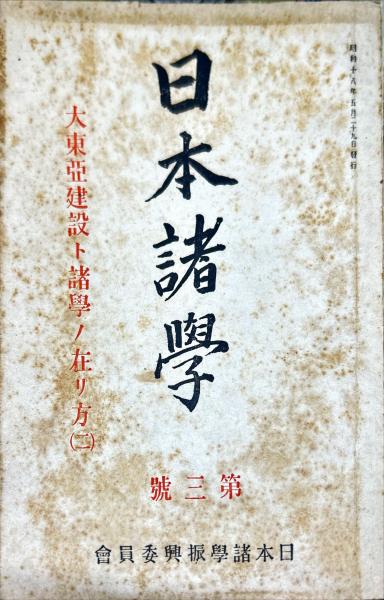 昭和十八年五月二十九日發行
日本諸學
大東亞建設ト諸學ノ在リ方(二)
第三號
日本諸學振興委員會